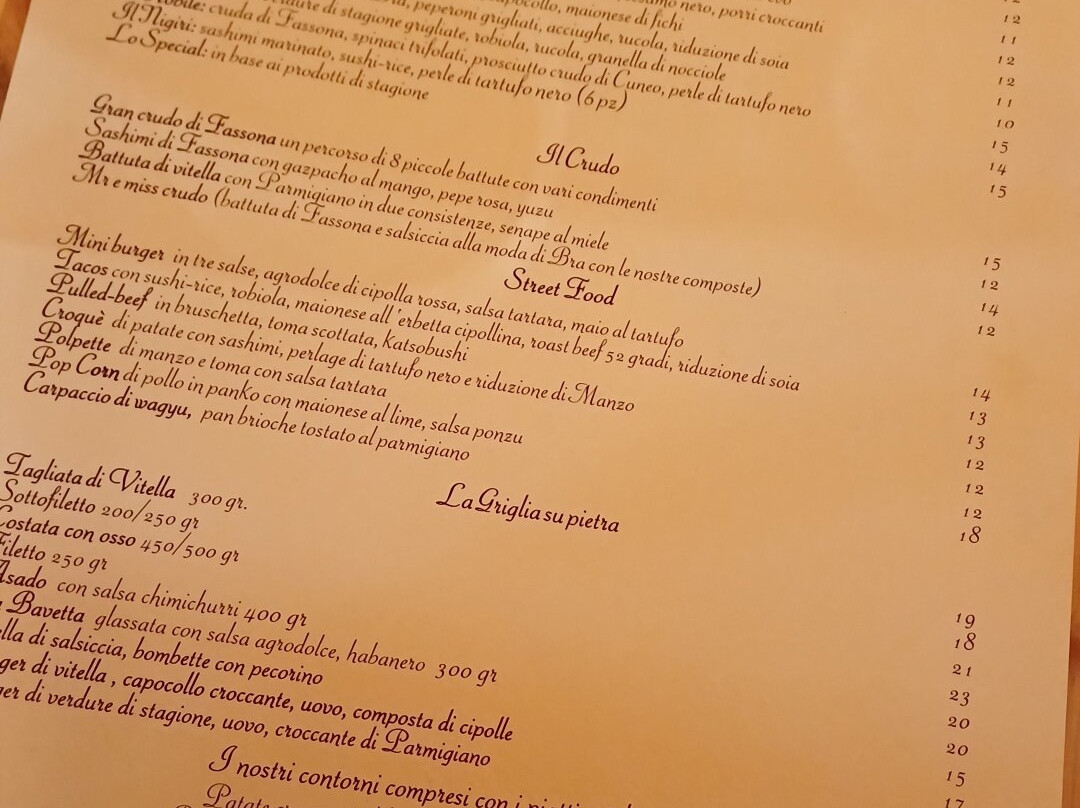 nero, porri croccanti
peperoni grigliati, acciughe, rucola, riduzione di soia
di stagione grigliate, robiola, rucola, granella di nocciole
cruda di Fassona, spinaci trifolati, prosciutto crudo di Cuneo, perle di tartufo nero
Il Nigiri: sashimi marinato, sushi-rice, perle di tartufo nero (6 pz)
Lo Special: in base ai prodotti di stagione
12
11
12
12
11
10
15
14
15
Il Crudo
Gran crudo di Fassona un percorso di 8 piccole battute con vari condimenti
Sashimi di Fassona con gazpacho al mango, pepe rosa, yuzu
Battuta di vitella con Parmigiano in due consistenze, senape al miele
Mr e miss crudo (battuta di Fassona e salsiccia alla moda di Bra con le nostre composte)
15
12
14
12
Street Food
Mini burger in tre salse, agrodolce di cipolla rossa, salsa tartara, maio al tartufo
Tacos con sushi-rice, robiola, maionese all'erbetta cipollina, roast beef 52 gradi, riduzione di soia
Pulled-beef in bruschetta, toma scottata, katsobushi
Croquè di patate con sashimi, perlage di tartufo nero e riduzione di Manzo
Polpette di manzo e toma con salsa tartara
Pop Corn di pollo in panko con maionese al lime, salsa ponzu
Carpaccio di wagyu, pan brioche tostato al parmigiano
14
13
13
12
12
12
18
La Griglia su pietra
Tagliata di Vitella 300 gr.
Sottofiletto 200/250 gr
Costata con osso 450/500 gr
Filetto 250 gr
Asado con salsa chimichurri 400 gr
Bavetta glassata con salsa agrodolce, habanero 300 gr
di salsiccia, bombette con pecorino
di vitella, capocollo croccante, uovo, composta di cipolle
di verdure di stagione, uovo, croccante di Parmigiano
19
18
21
23
20
20
15
17
I nostri contorni compresi con i